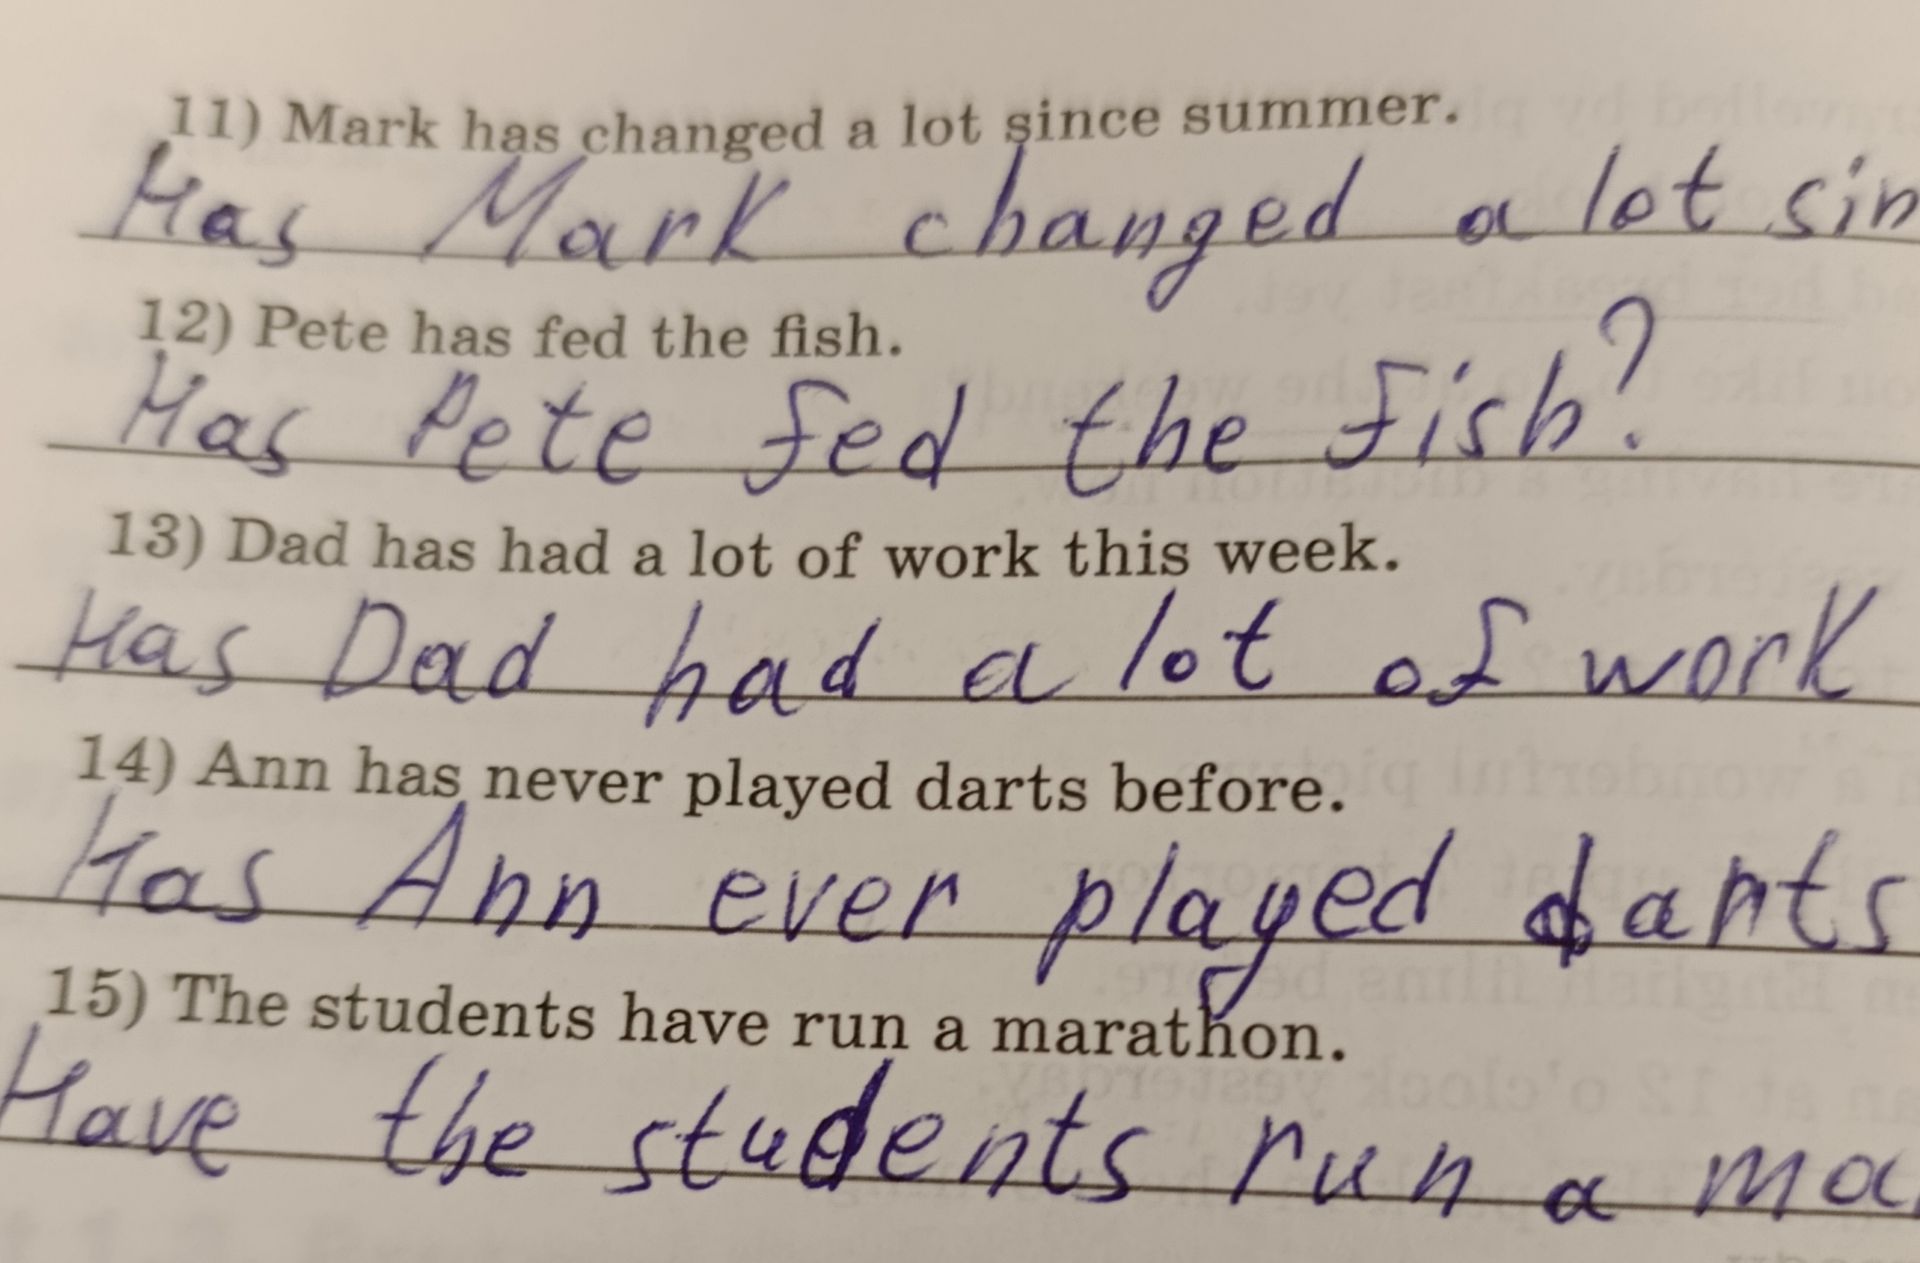 11) Mark has changed a lot since summer.
Has Mark changed a lot sin
12) Pete has fed the fish.
Has Pete fed the fish?
13) Dad has had a lot of work this week.
Has Dad had a lot of work
14) Ann has never played darts before.
Has Ann ever played darts
15) The students have run a marathon.
Have the students run a ma